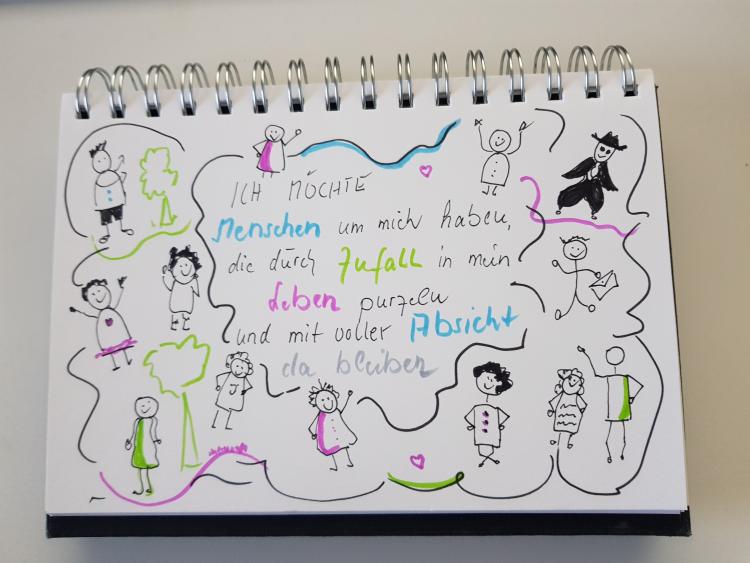 ICH MÖCHTE
Menschen um mich haben,
die durch Zufall in mein
Leben purzeln
und mit voller Absicht
da bleiben
J